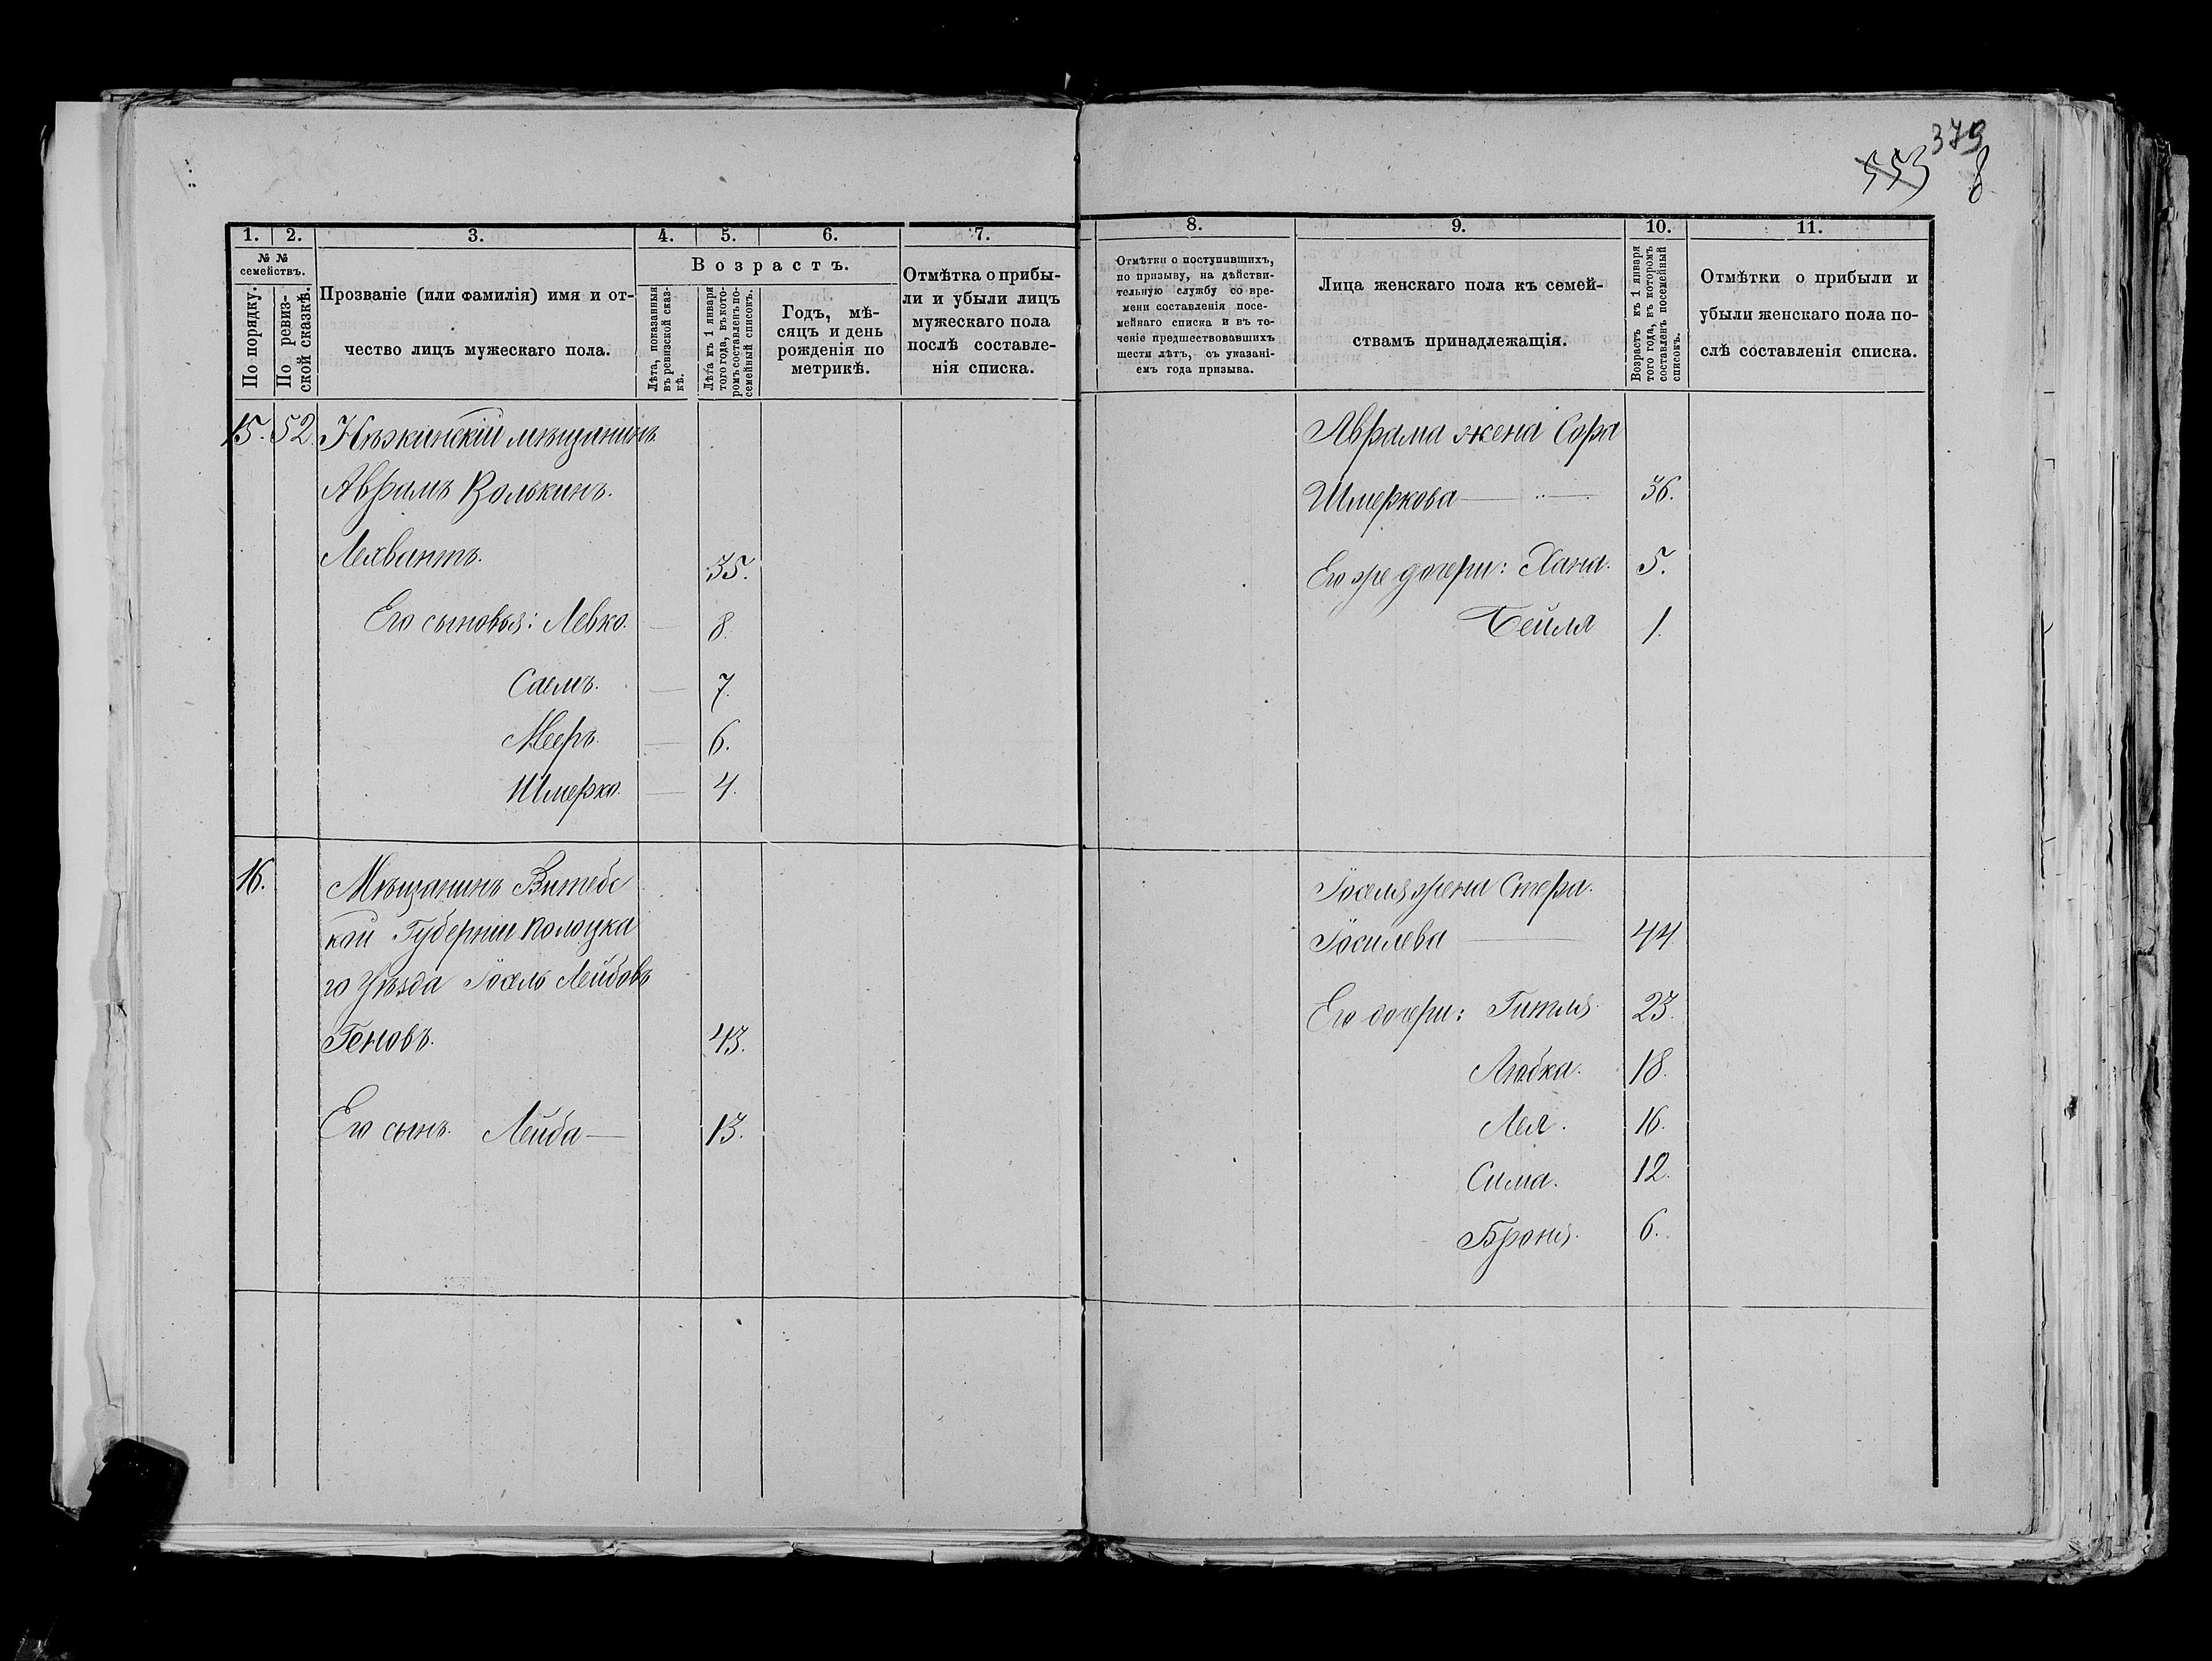 379
553 8
1. 2. 3. 4. 5. 6. 7.
№ №
семействъ.
По порядку.
По ревиз-
ской сказкѣ.
Прозваніе (или фамилія) имя и от-
чество лицъ мужескаго пола.
Возрастъ.
Лѣта, показанныя
въ ревизской сказ-
кѣ.
Лѣта къ 1 января
того года, въ кото-
ромъ составленъ по-
семейный списокъ.
Годъ, мѣ-
сяцъ и день
рожденія по
метрикѣ.
Отмѣтка о прибы-
ли и убыли лицъ
мужескаго пола
послѣ составле-
нія списка.
15. 52 Нѣжинскій мѣщанинъ
Аврамъ Волькинъ.
Лехвантъ. 35.
Его сыновья: Левко. 8.
Саемъ. 7.
Мееръ. 6.
Шмерко. 4.
16. Мѣщанинъ Витебс
кой Губерніи Полоцка
го Уѣзда Іосель Лейбовъ
Геновъ. 43.
Его сынъ. Лейба — 13.
8. 9. 10. 11.
Отмѣтки о поступившихъ,
по призыву, на дѣйстви-
тельную службу со вре-
мени составленія посе-
мейнаго списка и въ те-
ченіе предшествовавшихъ
шести лѣтъ, съ указані-
емъ года призыва.
Лица женскаго пола къ семей-
ствамъ принадлежащія.
Возрастъ къ 1 января
того года, въ которомъ
составленъ посемейный
списокъ.
Отмѣтки о прибыли и
убыли женскаго пола по-
слѣ составленія списка.
Аврама жена Сора
Шмеркова — 36.
Его же дочери: Хана. 5.
Бейля 1.
Іоселя жена Стера.
Іосилева 44
Его дочери: Гитля. 23.
Любка. 18.
Лея. 16.
Сима. 12.
Броня. 6.